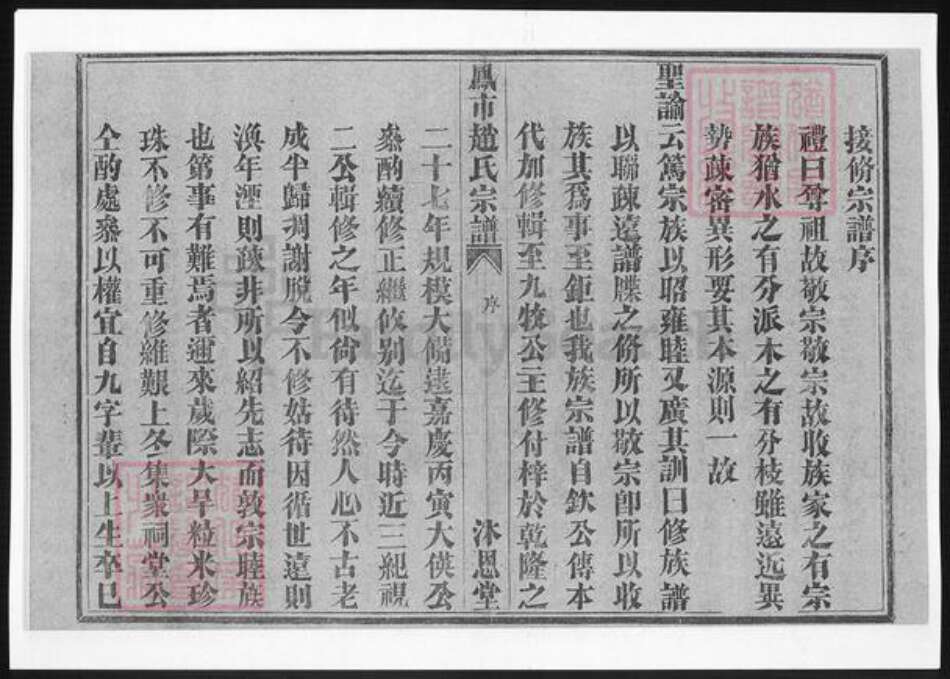 接脩宗譜序
禮曰尊祖故敬宗敬宗故收族家之有宗
族猶水之有分派木之有分枝雖遠近異
勢疎密異形要其本源則一故
聖諭云篤宗族以昭雍睦又廣其訓曰修族譜
以聯疎遠譜牒之脩所以敬宗卽所以收
族其爲事至鉅也我族宗譜自欽公傳本
代加修輯至九牧公主修付梓於乾隆之
鳳市趙氏宗譜 序 沐恩堂
二十七年規模大備逮嘉慶丙寅大偀公
叅酌續修正繼攸别迄于今時近三紀視
二公輯修之年似尙有待然人心不古老
成半歸凋謝脫令不修姑待因循世遠則
渙年湮則疎非所以紹先志而敦宗睦族
也第事有難焉者邇來歲際大旱粒米珍
珠不修不可重修維艱上冬集衆祠堂公
仝酌處叅以權宜自九字輩以上生卒已